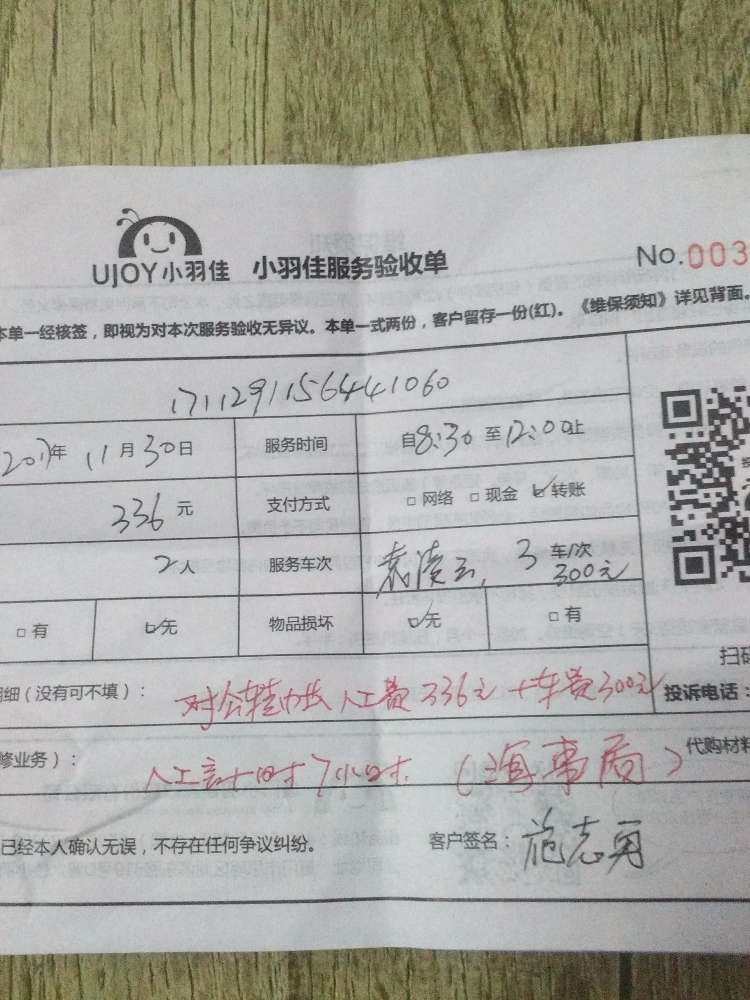 UJOY小羽佳 小羽佳服务验收单 No.003
本单一经核签，即视为对本次服务验收无异议。本单一式两份，客户留存一份(红)。《维保须知》详见背面。
1711291156441060
2017年 11月30日 服务时间 自8:30至12:00止
336元 支付方式 □网络 □现金 ☑转账
2人 服务车次 3车/次
300元
□有 ☑无 物品损坏 ☑无 □有
扫码
细（没有可不填）： 对公转账 人工费336元+车费300元 投诉电话：
修业务）： 人工计时7小时（海事局） 代购材料
已经本人确认无误，不存在任何争议纠纷。 客户签名：施志勇